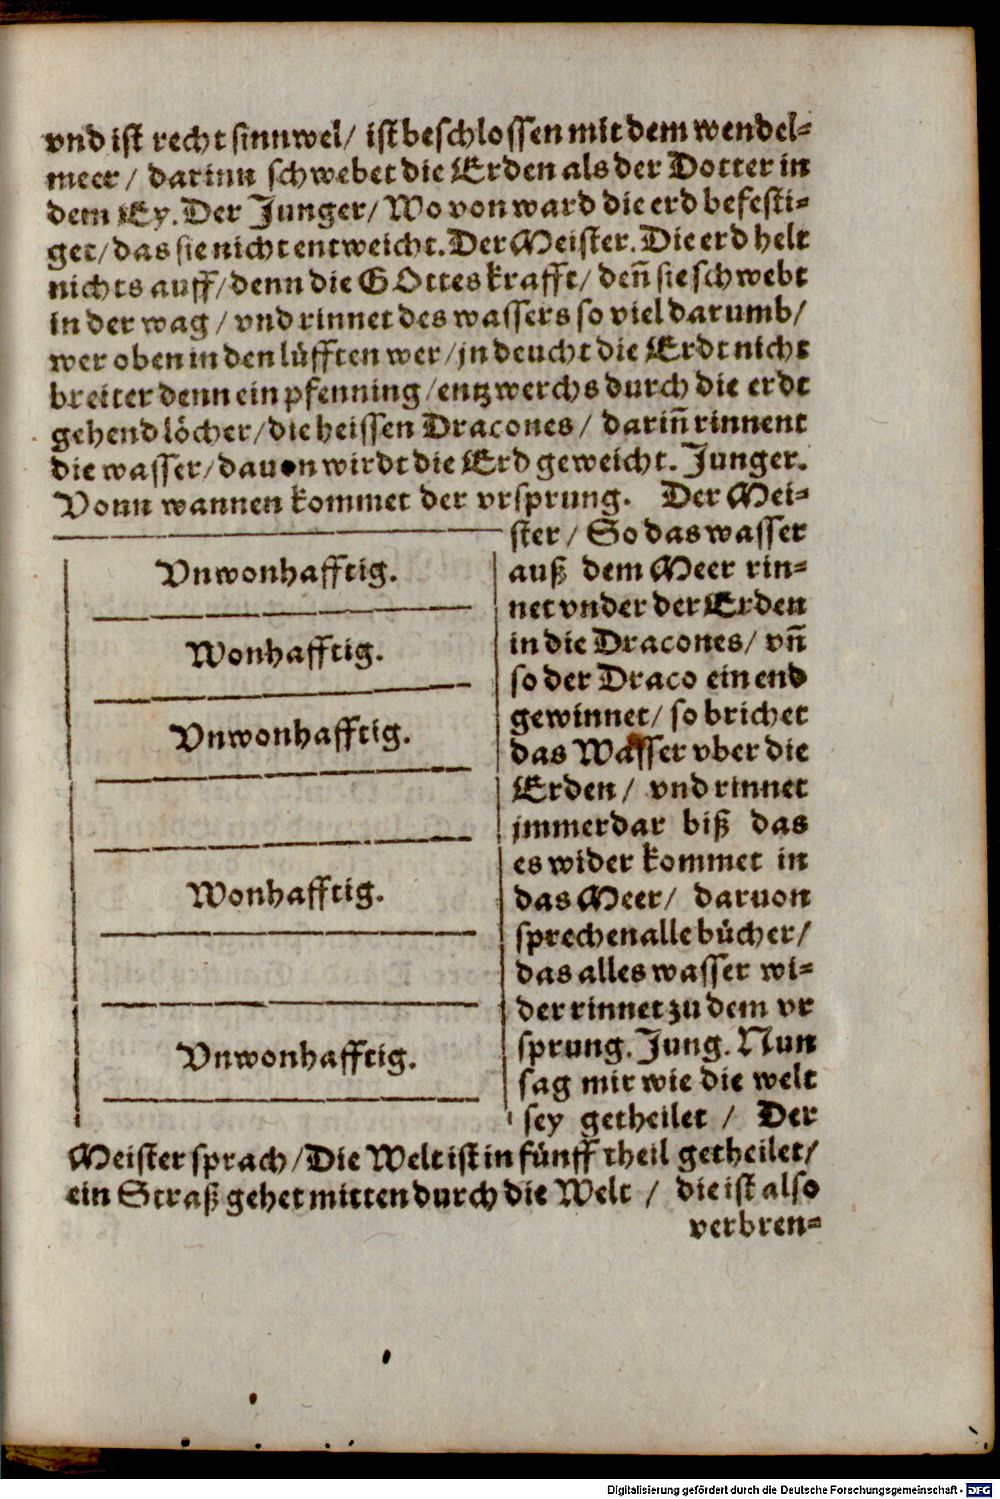 vnd ist recht sinnwel/ ist beschlossen mit dem wendel-
meer/ darinn schwebet die Erden als der Dotter in
dem Ey. Der Junger/ Wo von ward die erd befesti-
get/ das sie nicht entweicht. Der Meister. Die erd helt
nichts auff/ denn die GOttes krafft/ deñ sie schwebt
in der wag/ vnd rinnet des wassers so viel darumb/
wer oben in den lüfften wer/ jn deucht die Erdt nicht
breiter denn ein pfenning/ entzwerchs durch die erdt
gehend löcher/ die heissen Dracones/ dariñ rinnent
die wasser/ dauon wirdt die Erd geweicht. Junger.
Vonn wannen kommet der vrsprung. Der Mei-
ster/ So das wasser
auß dem Meer rin-
net vnder der Erden
in die Dracones/ vñ
so der Draco ein end
gewinnet/ so brichet
das Wasser vber die
Erden/ vnd rinnet
jmmerdar biß das
es wider kommet in
das Meer/ daruon
sprechen alle bücher/
das alles wasser wi-
der rinnet zu dem vr
sprung. Jung. Nun
sag mir wie die welt
sey getheilet/ Der
Vnwonhafftig.
Wonhafftig.
Vnwonhafftig.
Wonhafftig.
Vnwonhafftig.
Meister sprach/ Die Welt ist in fünff theil getheilet/
ein Straß gehet mitten durch die Welt/ die ist also
verbren-
Digitalisierung gefördert durch die Deutsche Forschungsgemeinschaft - DFG